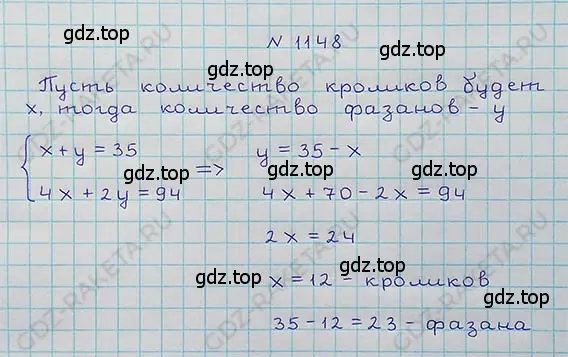 N 1148
gdz.top
gdz.top
Пусть количество кроликов будет
x, тогда количество фазанов - y
gdz.top
gdz.top
{ x + y = 35 => y = 35 - x
gdz.top
gdz.top
4x + 2y = 94 4x + 70 - 2x = 94
gdz.top
gdz.top
2x = 24
gdz.top
gdz.top
x = 12 - кроликов
gdz.top
gdz.top
35 - 12 = 23 - фазана
GDZ-RAKETA.RU